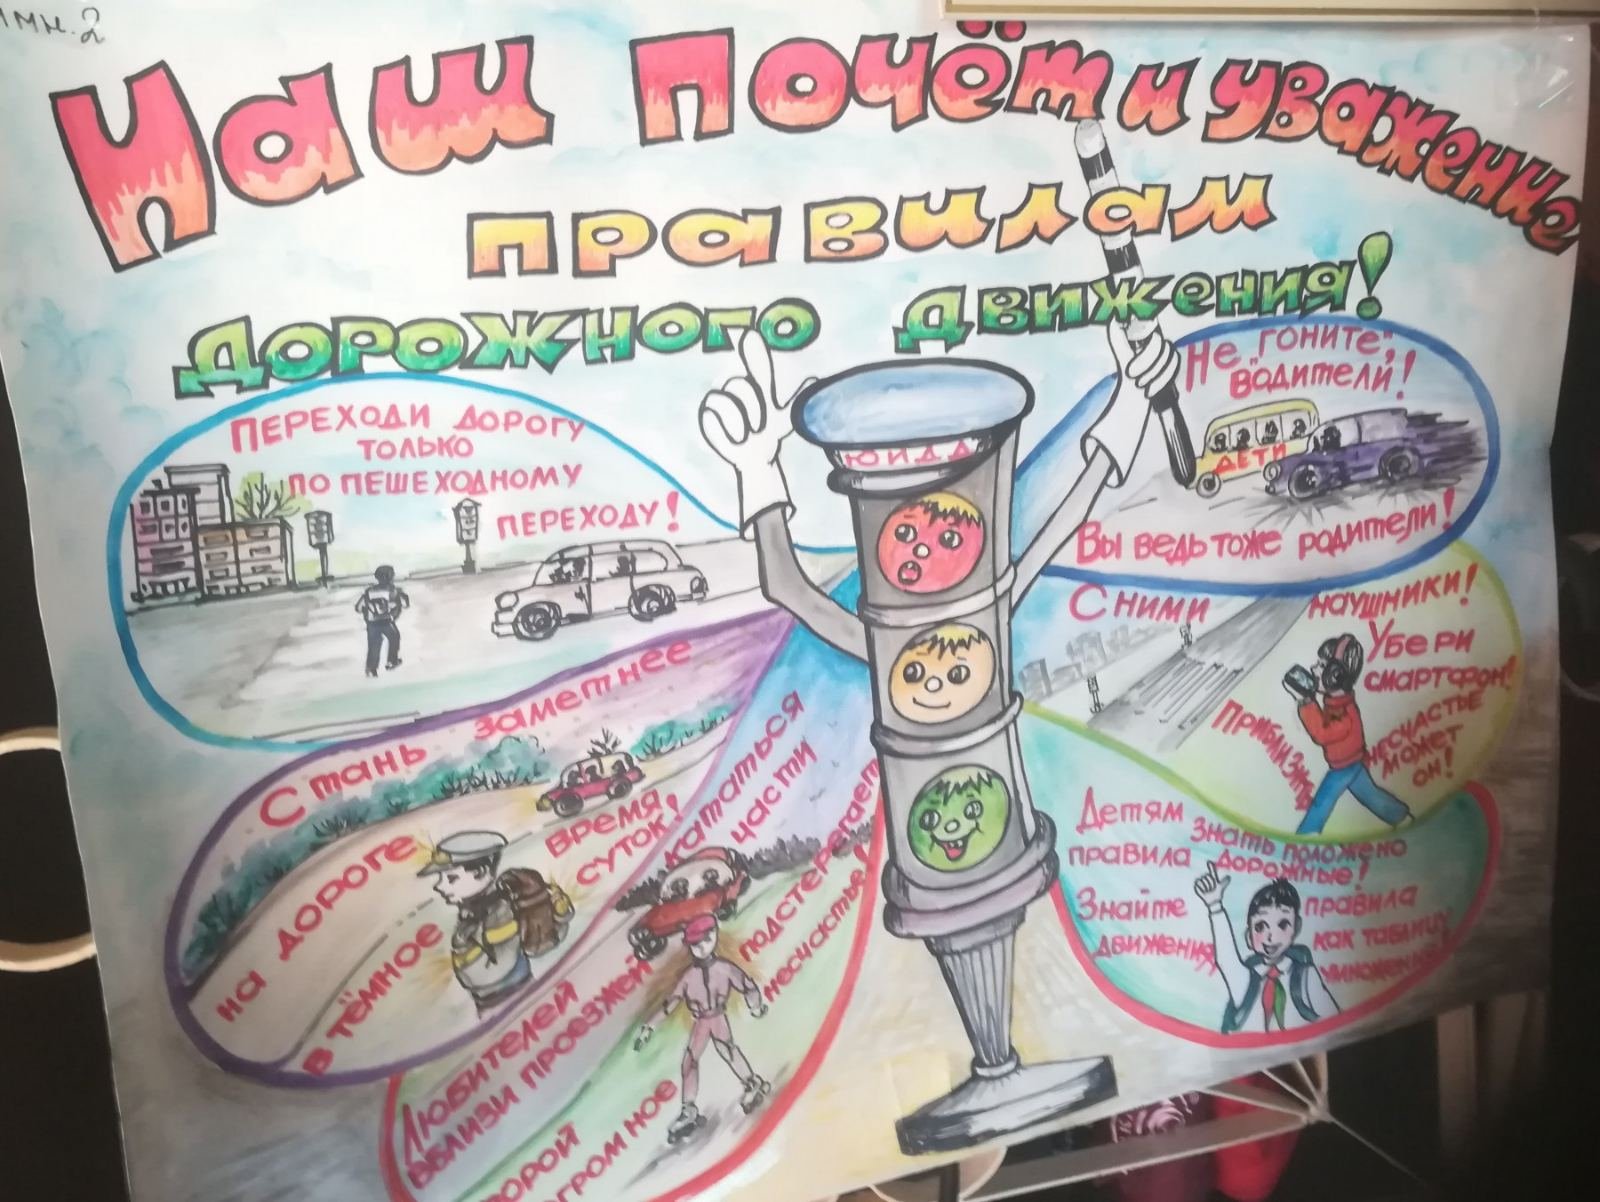 Наш почёт и уважение
правилам
дорожного движения!
ПЕРЕХОДИ ДОРОГУ
ТОЛЬКО
ПО ПЕШЕХОДНОМУ
ПЕРЕХОДУ!
Стань заметнее
на дороге
в тёмное
время
суток!
Любителей кататься
вблизи проезжей части
порой подстерегает
огромное несчастье!
ЮИДД
Не "гоните",
водители!
ДЕТИ
Вы ведь тоже родители!
Сними наушники!
Убери
смартфон!
Приблизить
несчастье
может
он!
Детям знать положено
правила дорожные!
Знайте правила
движения,
как таблицу
умножения!